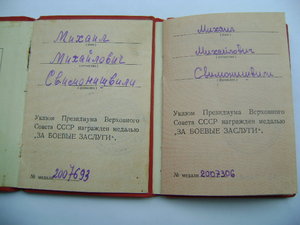 Михаил
(имя)
Михайлович
(отчество)
(фамилия)
Указом Президиума Верховного
Совета СССР награжден медалью
„ЗА БОЕВЫЕ ЗАСЛУГИ“.
№ медали 2007693
Михаил
(имя)
Михайлович
(отчество)
(фамилия)
Указом Президиума Верховного
Совета СССР награжден медалью
„ЗА БОЕВЫЕ ЗАСЛУГИ“.
№ медали 2007306